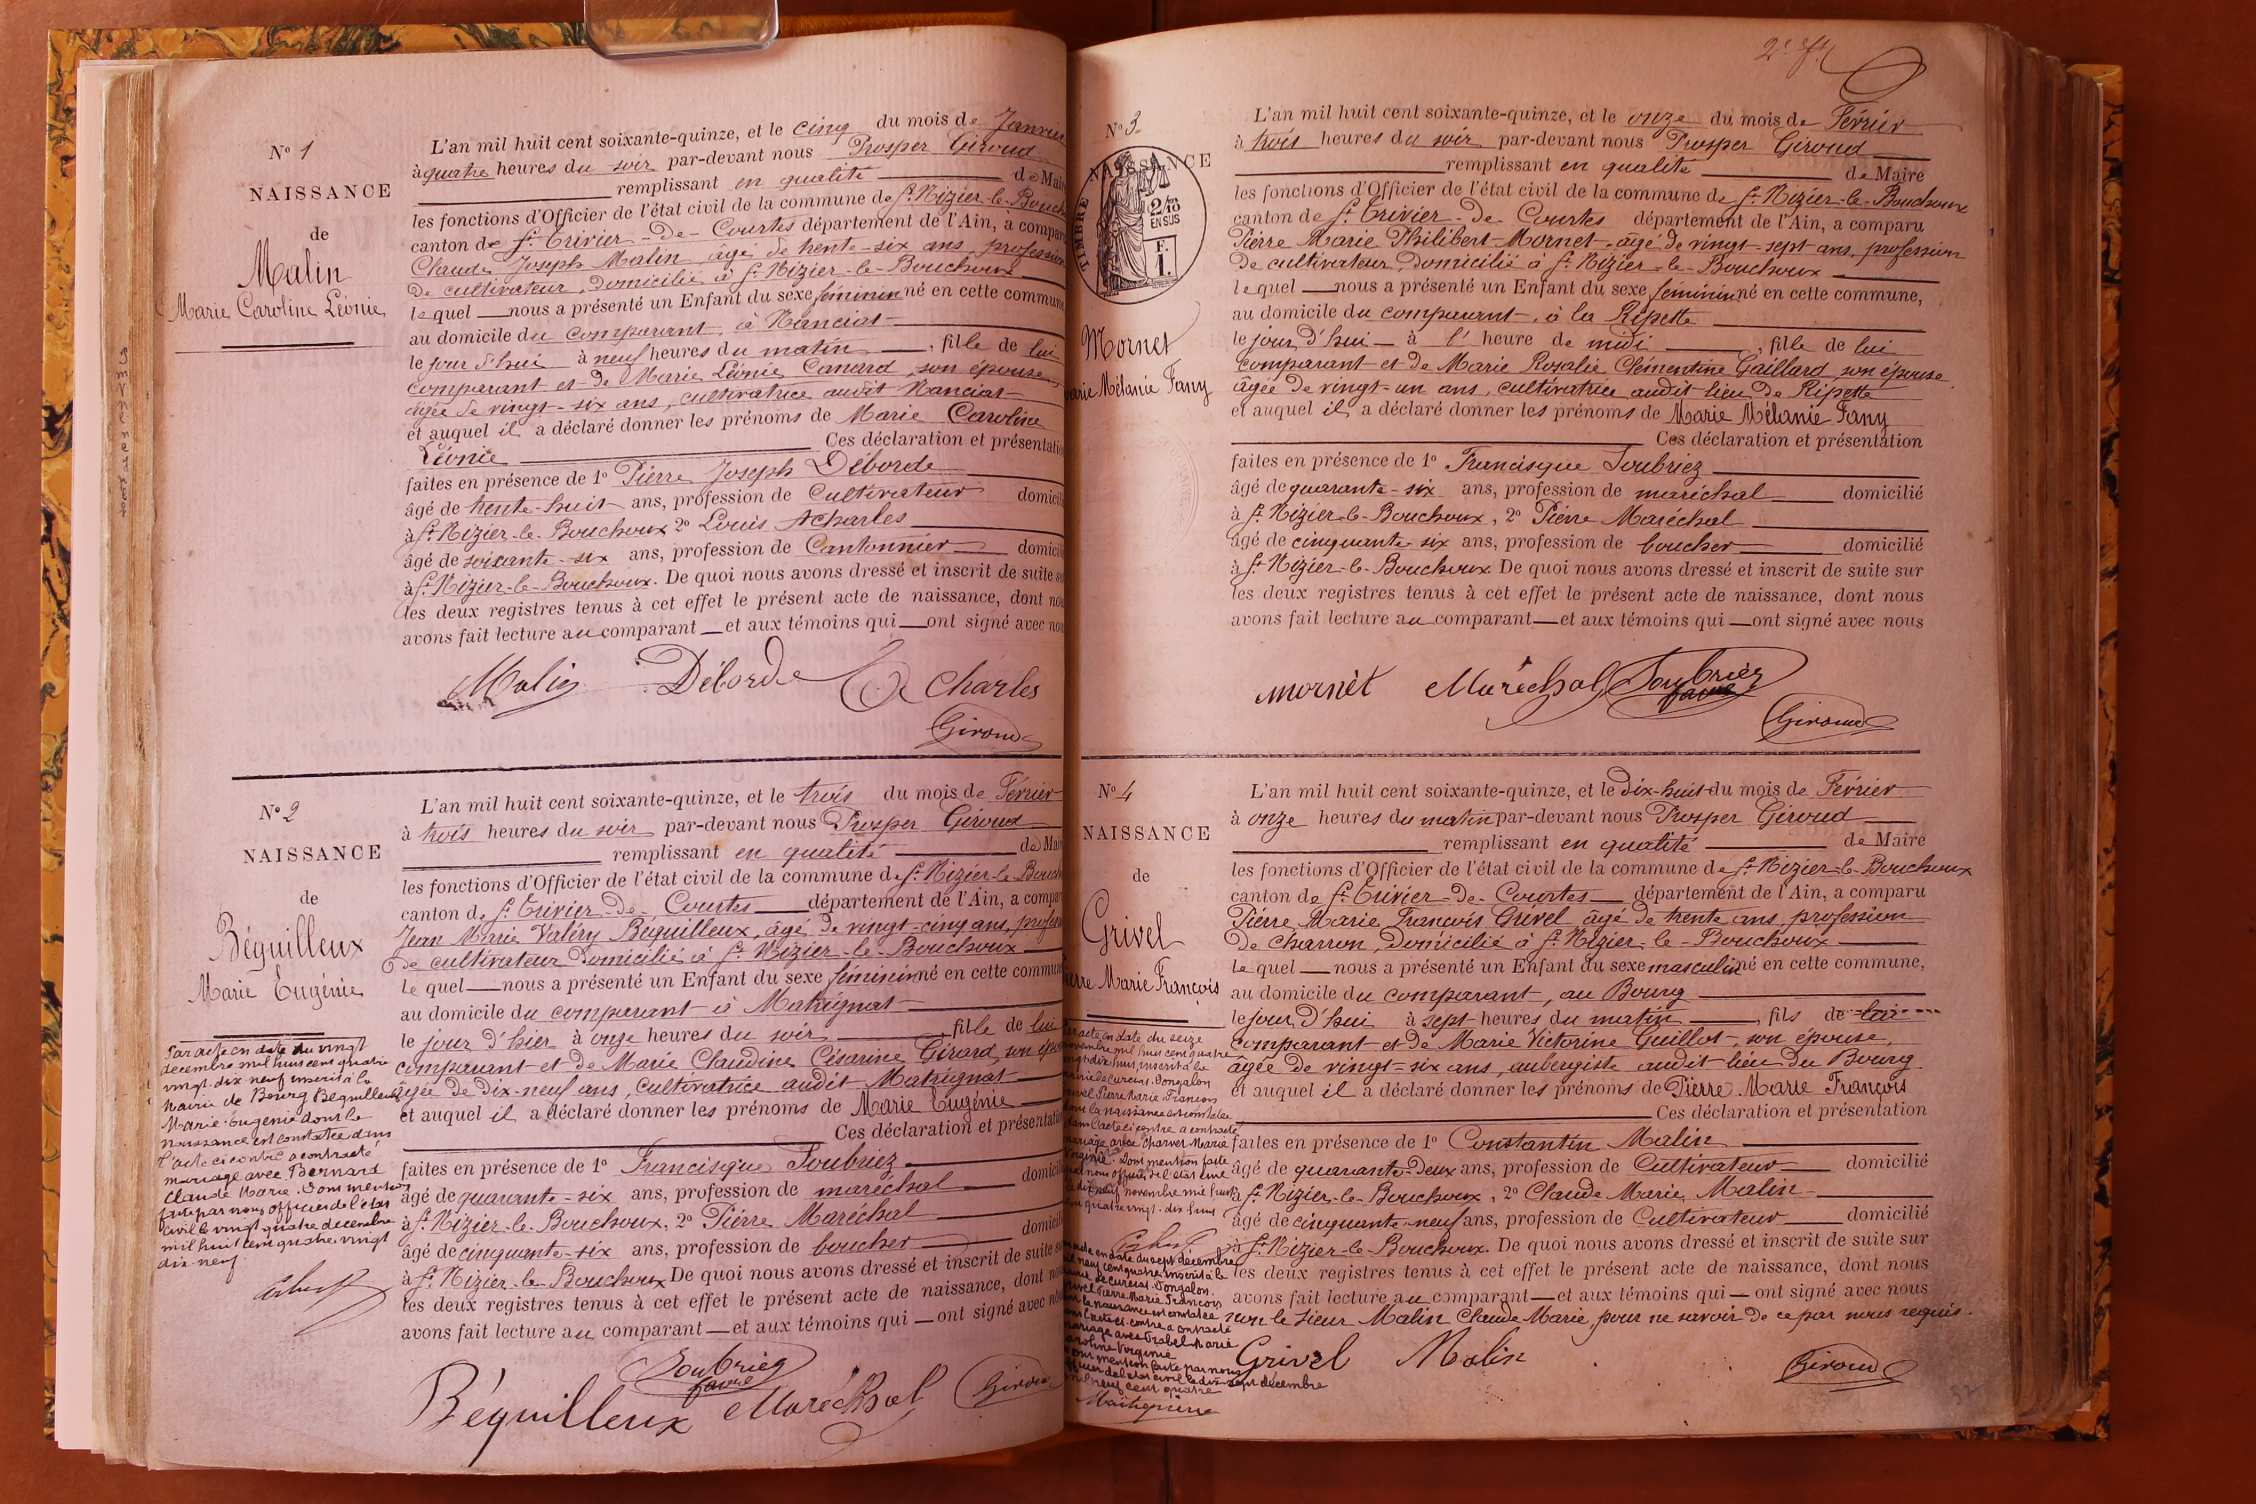 N° 1
NAISSANCE
de
Malin
Marie Caroline Léonie
L'an mil huit cent soixante-quinze, et le cinq du mois de Janvier
à quatre heures du soir par-devant nous Prosper Giroud
remplissant en qualité de Mai
les fonctions d'Officier de l'état civil de la commune de St Nizier-le-Bouch
canton de St Trivier-de-Courtes département de l'Ain, à compar
Claude Joseph Malin âgé de trente-six ans, profession
de cultivateur, domicilié à St Nizier-le-Bouchoux
lequel nous a présenté un Enfant du sexe féminin né en cette commune
au domicile du comparant, à Nanciat
le jour d'hui à neuf heures du matin, fille de lui
comparant et de Marie Léonie Canard, son épouse,
âgée de vingt-six ans, cultivatrice audit Nanciat
et auquel il a déclaré donner les prénoms de Marie Caroline
Léonie Ces déclaration et présentatio
faites en présence de 1° Pierre Joseph Déborde
âgé de trente-huit ans, profession de Cultivateur domicil
à St Nizier-le-Bouchoux 2° Louis Acharles
âgé de soixante-six ans, profession de Cantonnier domicil
à St Nizier-le-Bouchoux. De quoi nous avons dressé et inscrit de suite su
les deux registres tenus à cet effet le présent acte de naissance, dont nou
avons fait lecture au comparant et aux témoins qui ont signé avec nou
Malin Déborde Acharles
Giroud
N° 2
NAISSANCE
de
Béguilleux
Marie Eugénie
Par acte en date du vingt
décembre mil huit cent quatre
vingt dix neuf inscrit à la
Mairie de Bourg Béguilleux
Marie Eugénie dont la
naissance est constatée dans
l'acte ci contre a contracté
mariage avec Bernard
Claude Marie. Dont mention
faite par nous officier de l'état
civil le vingt quatre décembre
mil huit cent quatre vingt
dix neuf.
L'an mil huit cent soixante-quinze, et le trois du mois de Février
à trois heures du soir par-devant nous Prosper Giroud
remplissant en qualité de Mai
les fonctions d'Officier de l'état civil de la commune de St Nizier-le-Bouch
canton de St Trivier-de-Courtes département de l'Ain, a compar
Jean Marie Valéry Béguilleux, âgé de vingt-cinq ans, profess
de cultivateur domicilié à St Nizier-le-Bouchoux
lequel nous a présenté un Enfant du sexe féminin né en cette commun
au domicile du comparant à Matrignat
le jour d'hier à onze heures du soir, fille de lui
comparant et de Marie Claudine Césarine Girard, son épou
âgée de dix-neuf ans, cultivatrice audit Matrignat
et auquel il a déclaré donner les prénoms de Marie Eugénie
Ces déclaration et présentatio
faites en présence de 1° Francisque Soubriez
âgé de quarante-six ans, profession de maréchal domicil
à St Nizier-le-Bouchoux, 2° Pierre Maréchal
âgé de cinquante-six ans, profession de boucher domicil
à St Nizier-le-Bouchoux De quoi nous avons dressé et inscrit de suite su
les deux registres tenus à cet effet le présent acte de naissance, dont nou
avons fait lecture au comparant et aux témoins qui ont signé avec nou
Soubriez
Béguilleux Maréchal Giroud
N° 3
NAISSANCE
TIMBRE
2/10
EN SUS
F.
1.
Mornet
arie Mélanie Fany
L'an mil huit cent soixante-quinze, et le onze du mois de Février
à trois heures du soir par-devant nous Prosper Giroud
remplissant en qualité de Maire
les fonctions d'Officier de l'état civil de la commune de St Nizier-le-Bouchoux
canton de St Trivier-de-Courtes département de l'Ain, a comparu
Pierre Marie Philibert Mornet, âgé de vingt-sept ans, profession
de cultivateur, domicilié à St Nizier-le-Bouchoux
lequel nous a présenté un Enfant du sexe féminin né en cette commune,
au domicile du comparant, à la Ripette
le jour d'hui à l' heure de midi, fille de lui
comparant et de Marie Rosalie Clémentine Gaillard, son épouse,
âgée de vingt-un ans, cultivatrice audit lieu de Ripette
et auquel il a déclaré donner les prénoms de Marie Mélanie Fany
Ces déclaration et présentation
faites en présence de 1° Francisque Soubriez
âgé de quarante-six ans, profession de maréchal domicilié
à St Nizier-le-Bouchoux, 2° Pierre Maréchal
âgé de cinquante-six ans, profession de boucher domicilié
à St Nizier-le-Bouchoux De quoi nous avons dressé et inscrit de suite sur
les deux registres tenus à cet effet le présent acte de naissance, dont nous
avons fait lecture au comparant et aux témoins qui ont signé avec nous
mornèt Maréchal Soubriez
Giroud
N° 4
NAISSANCE
de
Grivel
ierre Marie François
ar acte en date du seize
novembre mil huit cent quatre
vingt dix huit, inscrit à la
mairie de Curciat-Dongalon
rivel Pierre Marie François
dont la naissance est constatée
dans l'acte ci contre a contracté
mariage avec Charvet Marie
Virginie. Dont mention faite
par nous officier de l'état civil
le dix neuf novembre mil huit
cent quatre vingt dix huit
acte en date du sept décembre
mil neuf cent quatre inscrit à la
mairie de Curciat-Dongalon.
Grivel Pierre Marie François
dont la naissance est constatée
dans l'acte ci-contre a contracté
mariage avec Marie
Virginie
Dont mention faite par nous
officier de l'état civil le dix sept décembre
mil neuf cent quatre
L'an mil huit cent soixante-quinze, et le dix-huit du mois de Février
à onze heures du matin par-devant nous Prosper Giroud
remplissant en qualité de Maire
les fonctions d'Officier de l'état civil de la commune de St Nizier-le-Bouchoux
canton de St Trivier-de-Courtes département de l'Ain, a comparu
Pierre Marie François Grivel âgé de trente ans, profession
de charron, domicilié à St Nizier-le-Bouchoux
lequel nous a présenté un Enfant du sexe masculin né en cette commune,
au domicile du comparant, au Bourg
le jour d'hui à sept heures du matin, fils de lui
comparant et de Marie Victorine Guillot, son épouse,
âgée de vingt-six ans, aubergiste audit lieu du Bourg
et auquel il a déclaré donner les prénoms de Pierre Marie François
Ces déclaration et présentation
faites en présence de 1° Constantin Malin
âgé de quarante-deux ans, profession de Cultivateur domicilié
à St Nizier-le-Bouchoux, 2° Claude Marie Malin
âgé de cinquante-neuf ans, profession de Cultivateur domicilié
à St Nizier-le-Bouchoux. De quoi nous avons dressé et inscrit de suite sur
les deux registres tenus à cet effet le présent acte de naissance, dont nous
avons fait lecture au comparant et aux témoins qui ont signé avec nous
non le sieur Malin Claude Marie, pour ne savoir de ce par nous requis.
Grivel Malin
Giroud